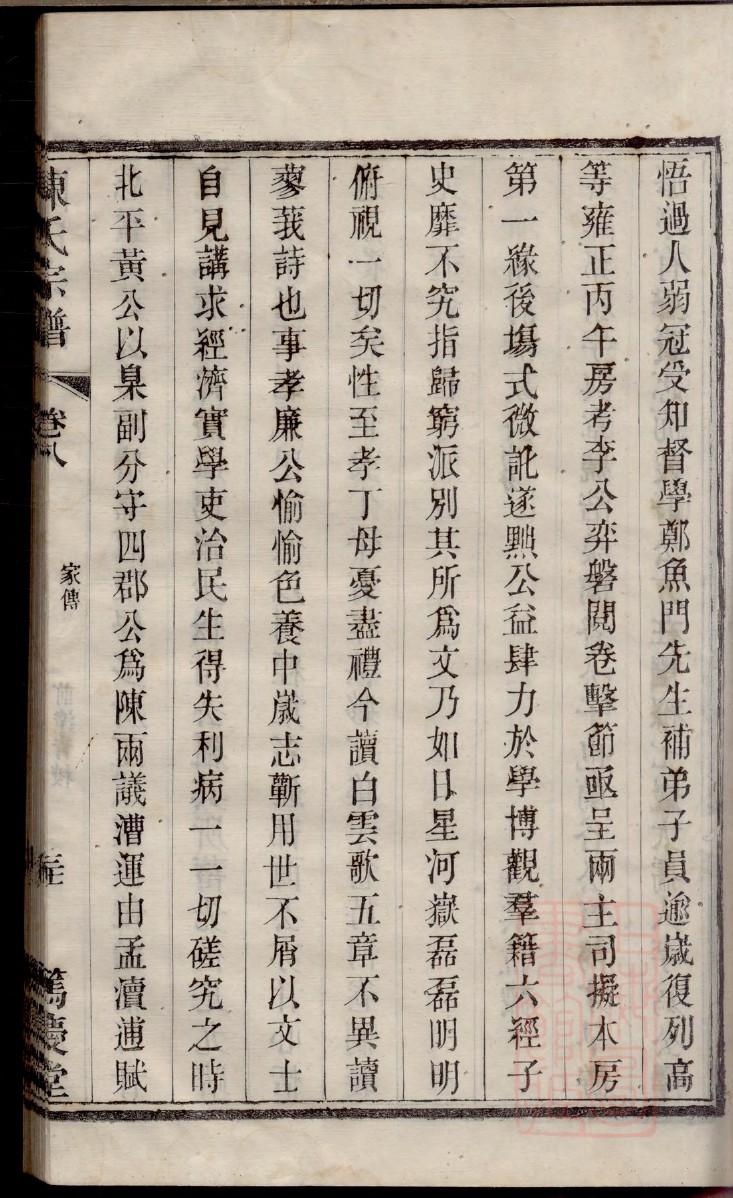 悟過人弱冠受知督學鄭魚門先生補弟子員逾歲復列高
等雍正丙午房考李公弈磐閱卷擊節亟呈兩主司擬本房
第一緣後塲式微訛遂黜公益肆力於學博觀羣籍六經子
史靡不究指歸窮派別其所爲文乃如日星河嶽磊磊明明
俯視一切矣性至孝丁母憂盡禮今讀白雲歌五章不異讀
蓼莪詩也事孝廉公愉愉色養中歲志蘄用世不屑以文士
自見講求經濟實學吏治民生得失利病一一切磋究之時
北平黃公以臬副分守四郡公爲陳兩議漕運由孟瀆逋賦
陳氏宗譜 卷八 家傳 篤慶堂